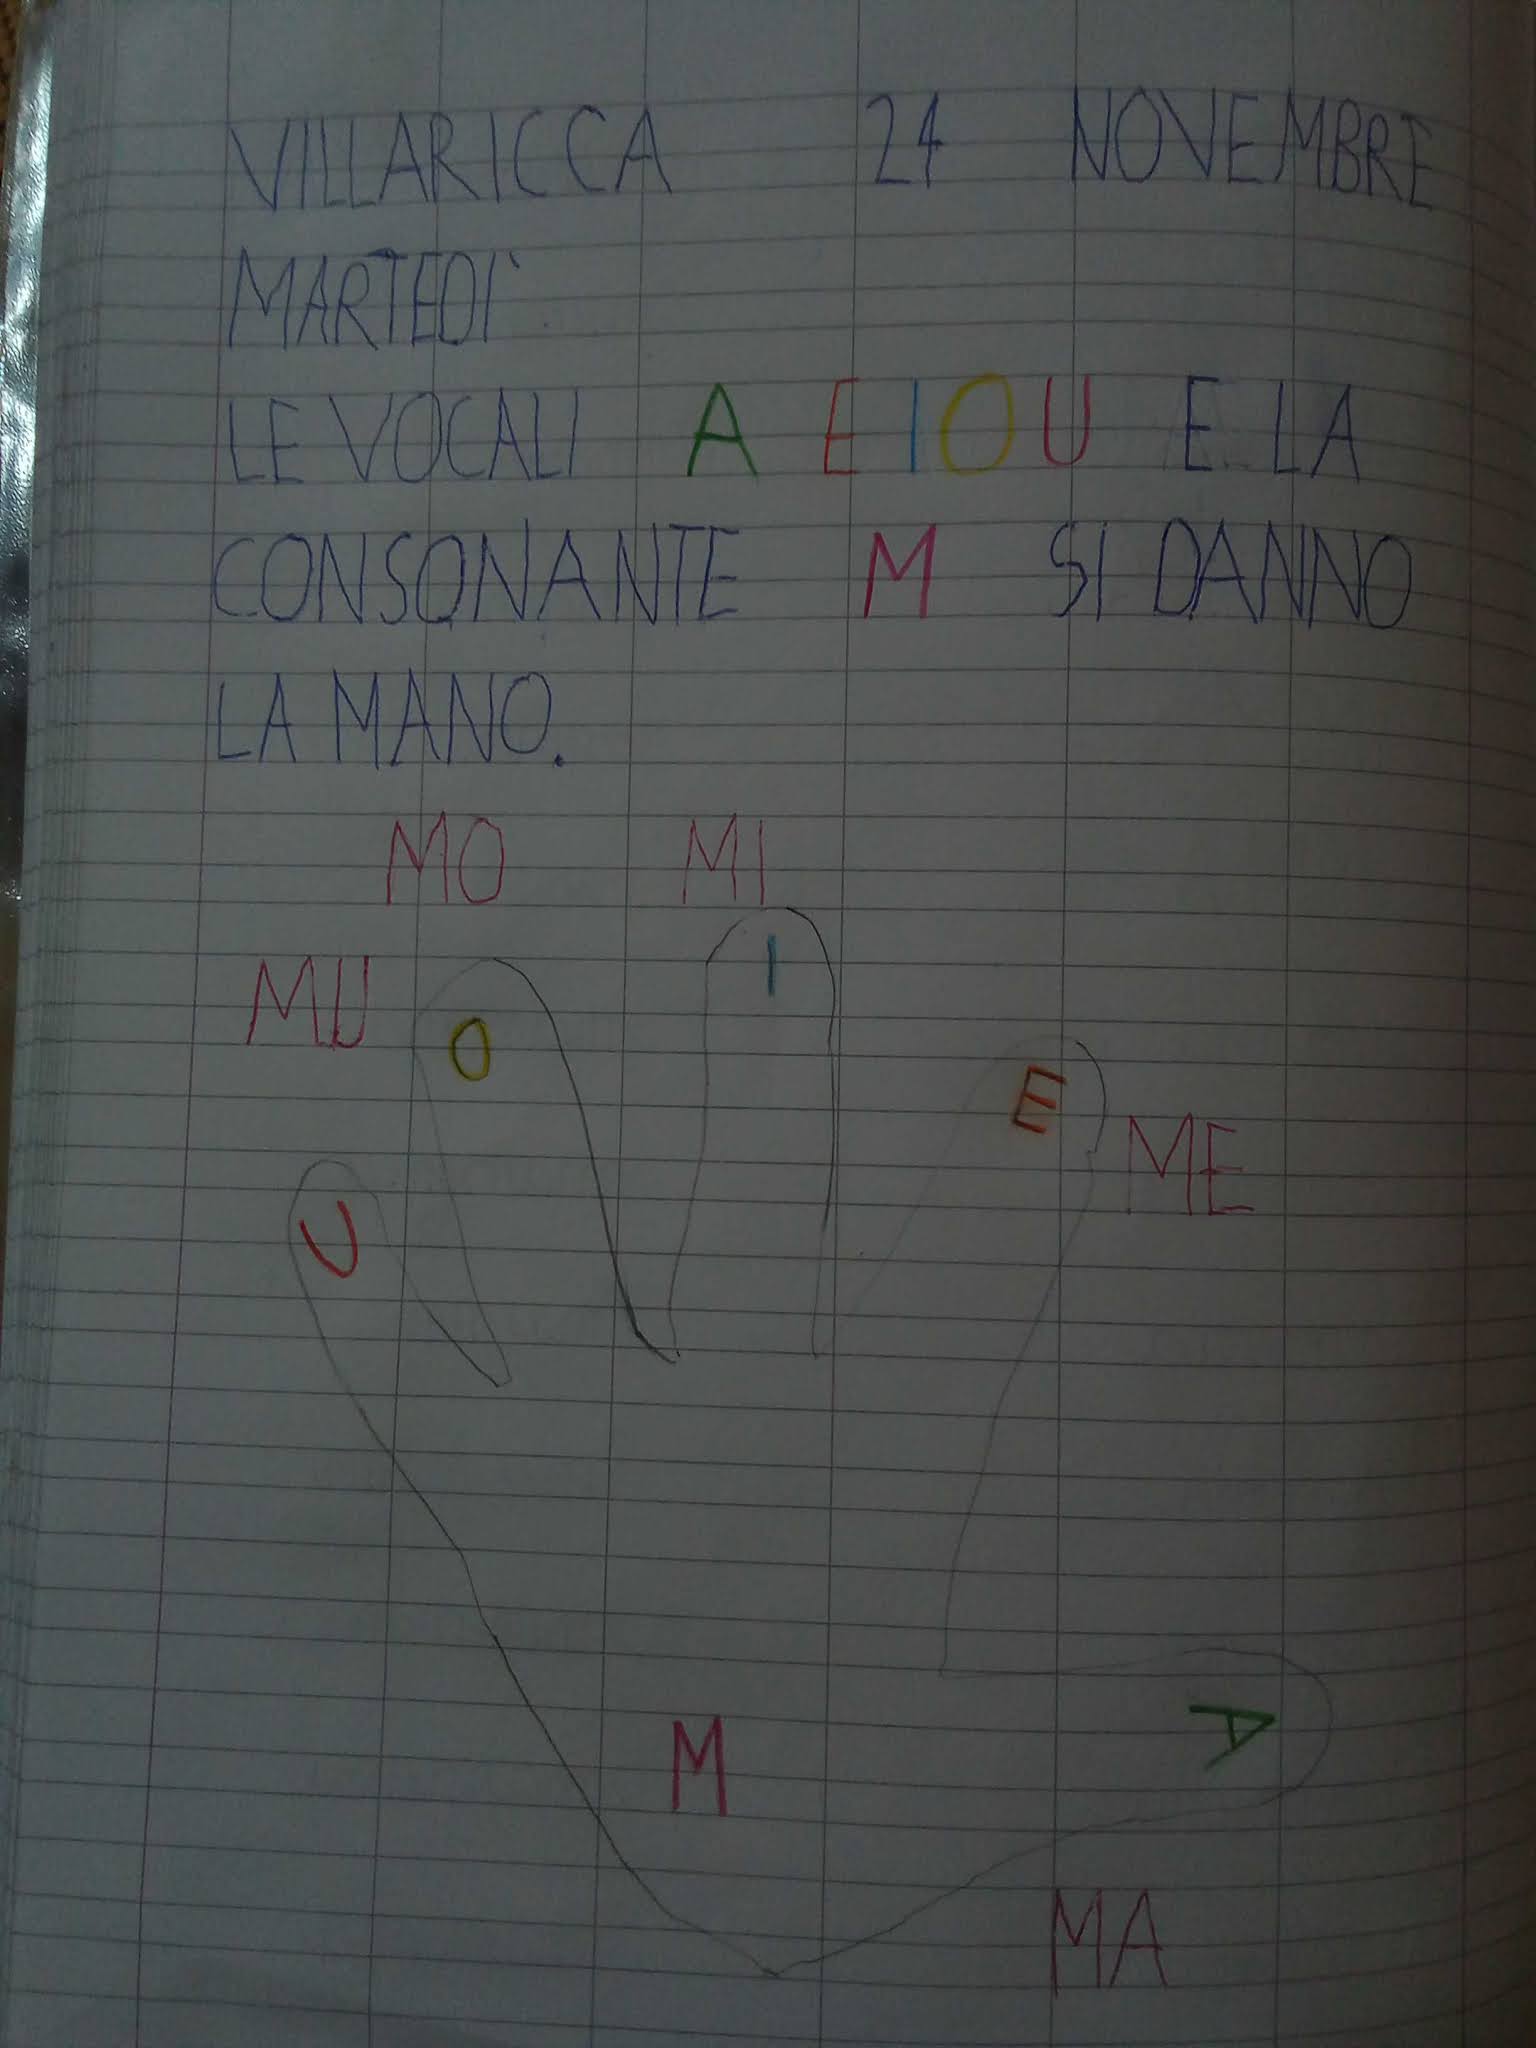 VILLARICCA 24 NOVEMBRE
MARTEDI`
LE VOCALI A E I O U E LA
CONSONANTE M SI DANNO
LA MANO.
MO MI
MU O I E ME
U
M A
MA